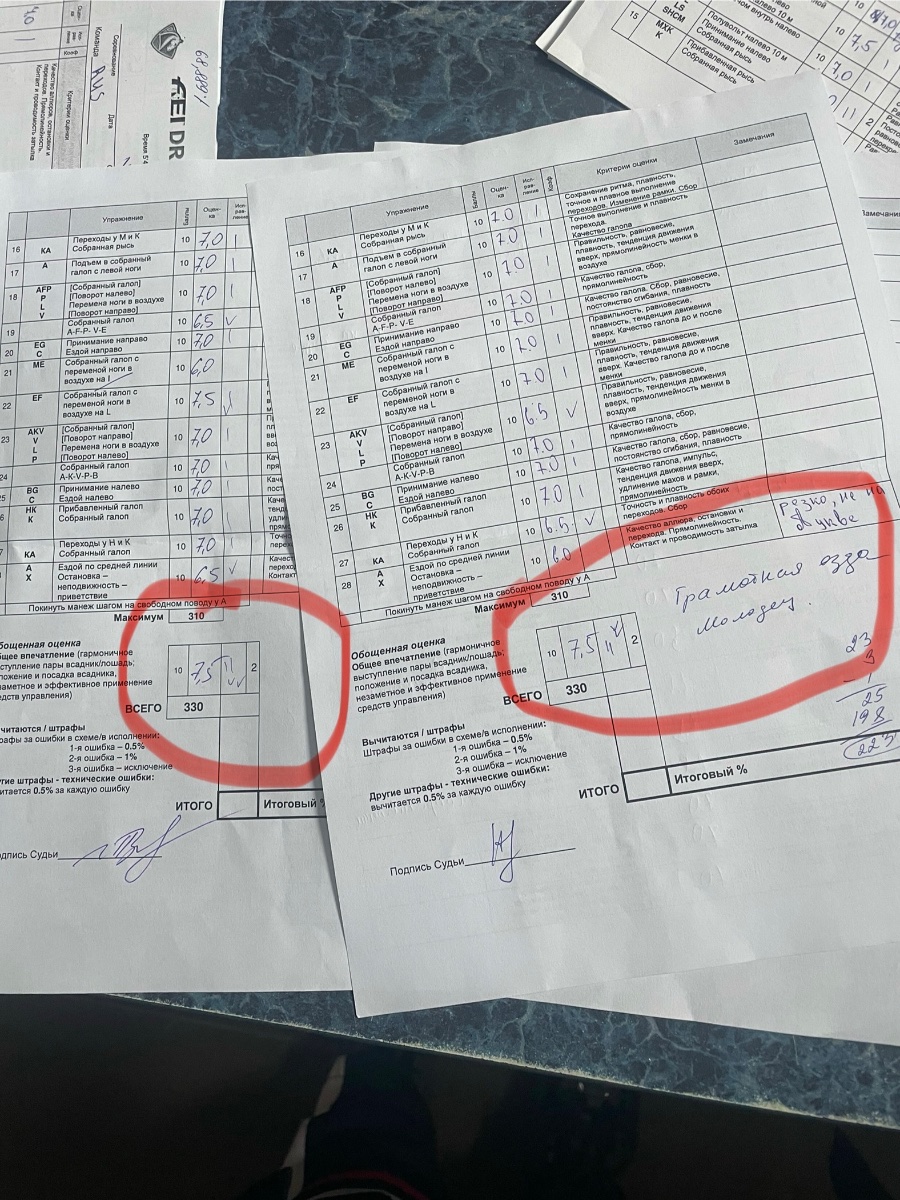 68,889%
FEI DR
Соревнование
Дата
Команда RUS
Время 5'4
Оцен-ка
Коэф
Критерии оценки
Качество аллюров, остановки и
переходов. Прямолинейность.
Контакт и проводимость затылка
налево 10 м
ном внутрь налево
15 LS
SHCM
MXK
K
Полувольт налево 10 м
Принимание налево
Собранная рысь
Прибавленная рысь
Собранная рысь
10 7,5
10 7,0
Упражнение
Баллы
Оцен-ка
Исп-рав-ление
16 KA Переходы у М и К
Собранная рысь 10 7,0 |
17 A Подъем в собранный
галоп с левой ноги 10 7,0 |
18 AFP
P
L
V
[Собранный галоп]
[Поворот налево]
Перемена ноги в воздухе
[Поворот направо]
10 7,0 |
19 Собранный галоп
A-F-P- V-E 10 6,5 V
20 EG
C
Принимание направо
Ездой направо 10 7,0 |
21 ME Собранный галоп с
переменой ноги в
воздухе на I 10 6,0
22 EF Собранный галоп с
переменой ноги в
воздухе на L 10 7,5
23 AKV
V
L
P
[Собранный галоп]
[Поворот направо]
Перемена ноги в воздухе
[Поворот налево]
10 7,0 |
24 Собранный галоп
A-K-V-P-B 10 7,0 |
25 BG
C
Принимание налево
Ездой налево 10 7,0
HK
K
Прибавленный галоп
Собранный галоп 10 7,0
KA Переходы у Н и К
Собранный галоп 10 7,0 |
A
X
Ездой по средней линии
Остановка –
неподвижность –
приветствие
10 6,5 V
Покинуть манеж шагом на свободном поводу у А
Максимум 310
Обощенная оценка
Общее впечатление (гармоничное
выступление пары всадник/лошадь;
положение и посадка всадника,
незаметное и эффективное применение
средств управления)
10 7,5 2
ВСЕГО 330
Вычитаются / штрафы
Штрафы за ошибки в схеме/в исполнении:
1-я ошибка – 0.5%
2-я ошибка – 1%
3-я ошибка – исключение
Другие штрафы - технические ошибки:
вычитается 0.5% за каждую ошибку
ИТОГО Итоговый %
Подпись Судьи
Упражнение
Баллы
Оцен-ка
Исп-рав-ление
Коэф
Критерии оценки
Замечания
16 KA Переходы у М и К
Собранная рысь 10 7.0 |
Сохранение ритма, плавность,
точное и плавное выполнение
переходов. Изменение рамки. Сбор
17 A Подъем в собранный
галоп с левой ноги 10 7.0 |
Точное выполнение и плавность
перехода.
Качество галопа
18 AFP
P
L
V
[Собранный галоп]
[Поворот налево]
Перемена ноги в воздухе
[Поворот направо]
10 7.0 |
Правильность, равновесие,
плавность, тенденция движения
вверх, прямолинейность менки в
воздухе
19 Собранный галоп
A-F-P- V-E 10 7.0 |
Качество галопа, сбор,
прямолинейность
20 EG
C
Принимание направо
Ездой направо 10 7.0
Качество галопа. Сбор, равновесие,
постоянство сгибания, плавность
21 ME Собранный галоп с
переменой ноги в
воздухе на I 10 7.0 |
Правильность, равновесие,
плавность, тенденция движения
вверх. Качество галопа до и после
менки
22 EF Собранный галоп с
переменой ноги в
воздухе на L 10 7.0 |
Правильность, равновесие,
плавность, тенденция движения
вверх. Качество галопа до и после
менки
23 AKV
V
L
P
[Собранный галоп]
[Поворот направо]
Перемена ноги в воздухе
[Поворот налево]
10 6.5 V
Правильность, равновесие,
плавность, тенденция движения
вверх, прямолинейность менки в
воздухе
24 Собранный галоп
A-K-V-P-B 10 7.0 |
Качество галопа, сбор,
прямолинейность
25 BG
C
Принимание налево
Ездой налево 10 7.0 |
Качество галопа, сбор, равновесие,
постоянство сгибания, плавность
26 HK
K
Прибавленный галоп
Собранный галоп 10 7.0 |
Качество галопа, импульс,
тенденция движения вверх,
удлинение махов и рамки,
прямолинейность
27 KA Переходы у Н и К
Собранный галоп 10 6.5 V
Точность и плавность обоих
переходов. Сбор
28 A
X
Ездой по средней линии
Остановка –
неподвижность –
приветствие
10 6.0
Качество аллюра, остановки и
перехода. Прямолинейность.
Контакт и проводимость затылка
Резко, не на
букве
Покинуть манеж шагом на свободном поводу у А
Максимум 310
Грамотная езда
Молодец.
Обощенная оценка
Общее впечатление (гармоничное
выступление пары всадник/лошадь;
положение и посадка всадника,
незаметное и эффективное применение
средств управления)
10 7,5 2
ВСЕГО 330
23
3
25
198
223
Вычитаются / штрафы
Штрафы за ошибки в схеме/в исполнении:
1-я ошибка – 0.5%
2-я ошибка – 1%
3-я ошибка – исключение
Другие штрафы - технические ошибки:
вычитается 0.5% за каждую ошибку
ИТОГО Итоговый %
Подпись Судьи